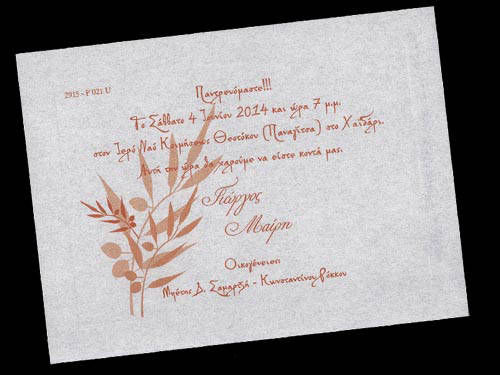 2915 - P 021 U
Παντρευόμαστε!!!
Το Σάββατο 4 Ιουνίου 2014 και ώρα 7 μ.μ.
στον Ιερό Ναό Κοιμήσεως Θεοτόκου (Παναγίτσα) στο Χαϊδάρι.
Αυτή την ώρα θα χαρούμε να είστε κοντά μας.
Γιώργος
Μαίρη
Οικογένειες
Μπότης Δ. Σαμαρτζή - Κωνσταντίνου